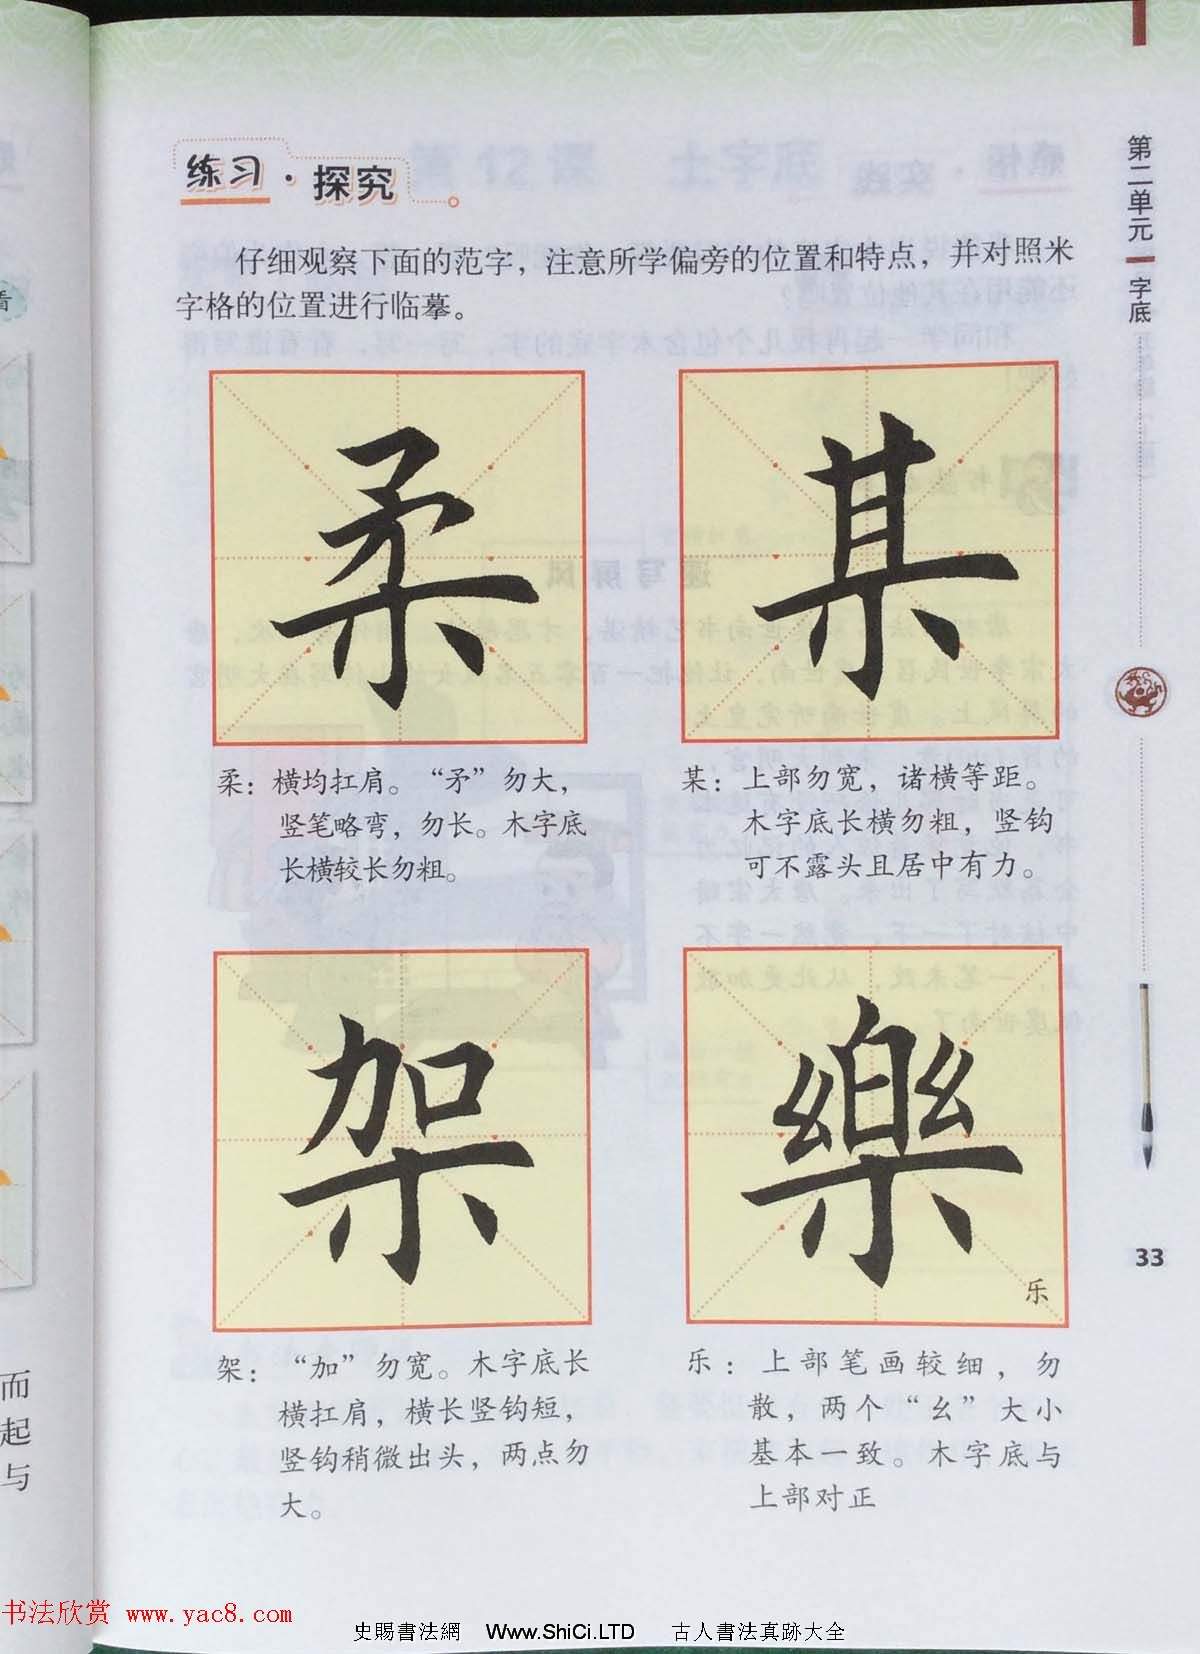 练习·探究
仔细观察下面的范字，注意所学偏旁的位置和特点，并对照米
字格的位置进行临摹。
柔
某
柔：横均扛肩。“矛”勿大，
竖笔略弯，勿长。木字底
长横较长勿粗。
某：上部勿宽，诸横等距。
木字底长横勿粗，竖钩
可不露头且居中有力。
架
樂
乐
架：“加”勿宽。木字底长
横扛肩，横长竖钩短，
竖钩稍微出头，两点勿
大。
乐：上部笔画较细，勿
散，两个“幺”大小
基本一致。木字底与
上部对正
第二单元 字底
33
而
起
与
书法欣赏 www.yac8.com
史賜書法網 Www.ShiCi.LTD 古人書法真跡大全